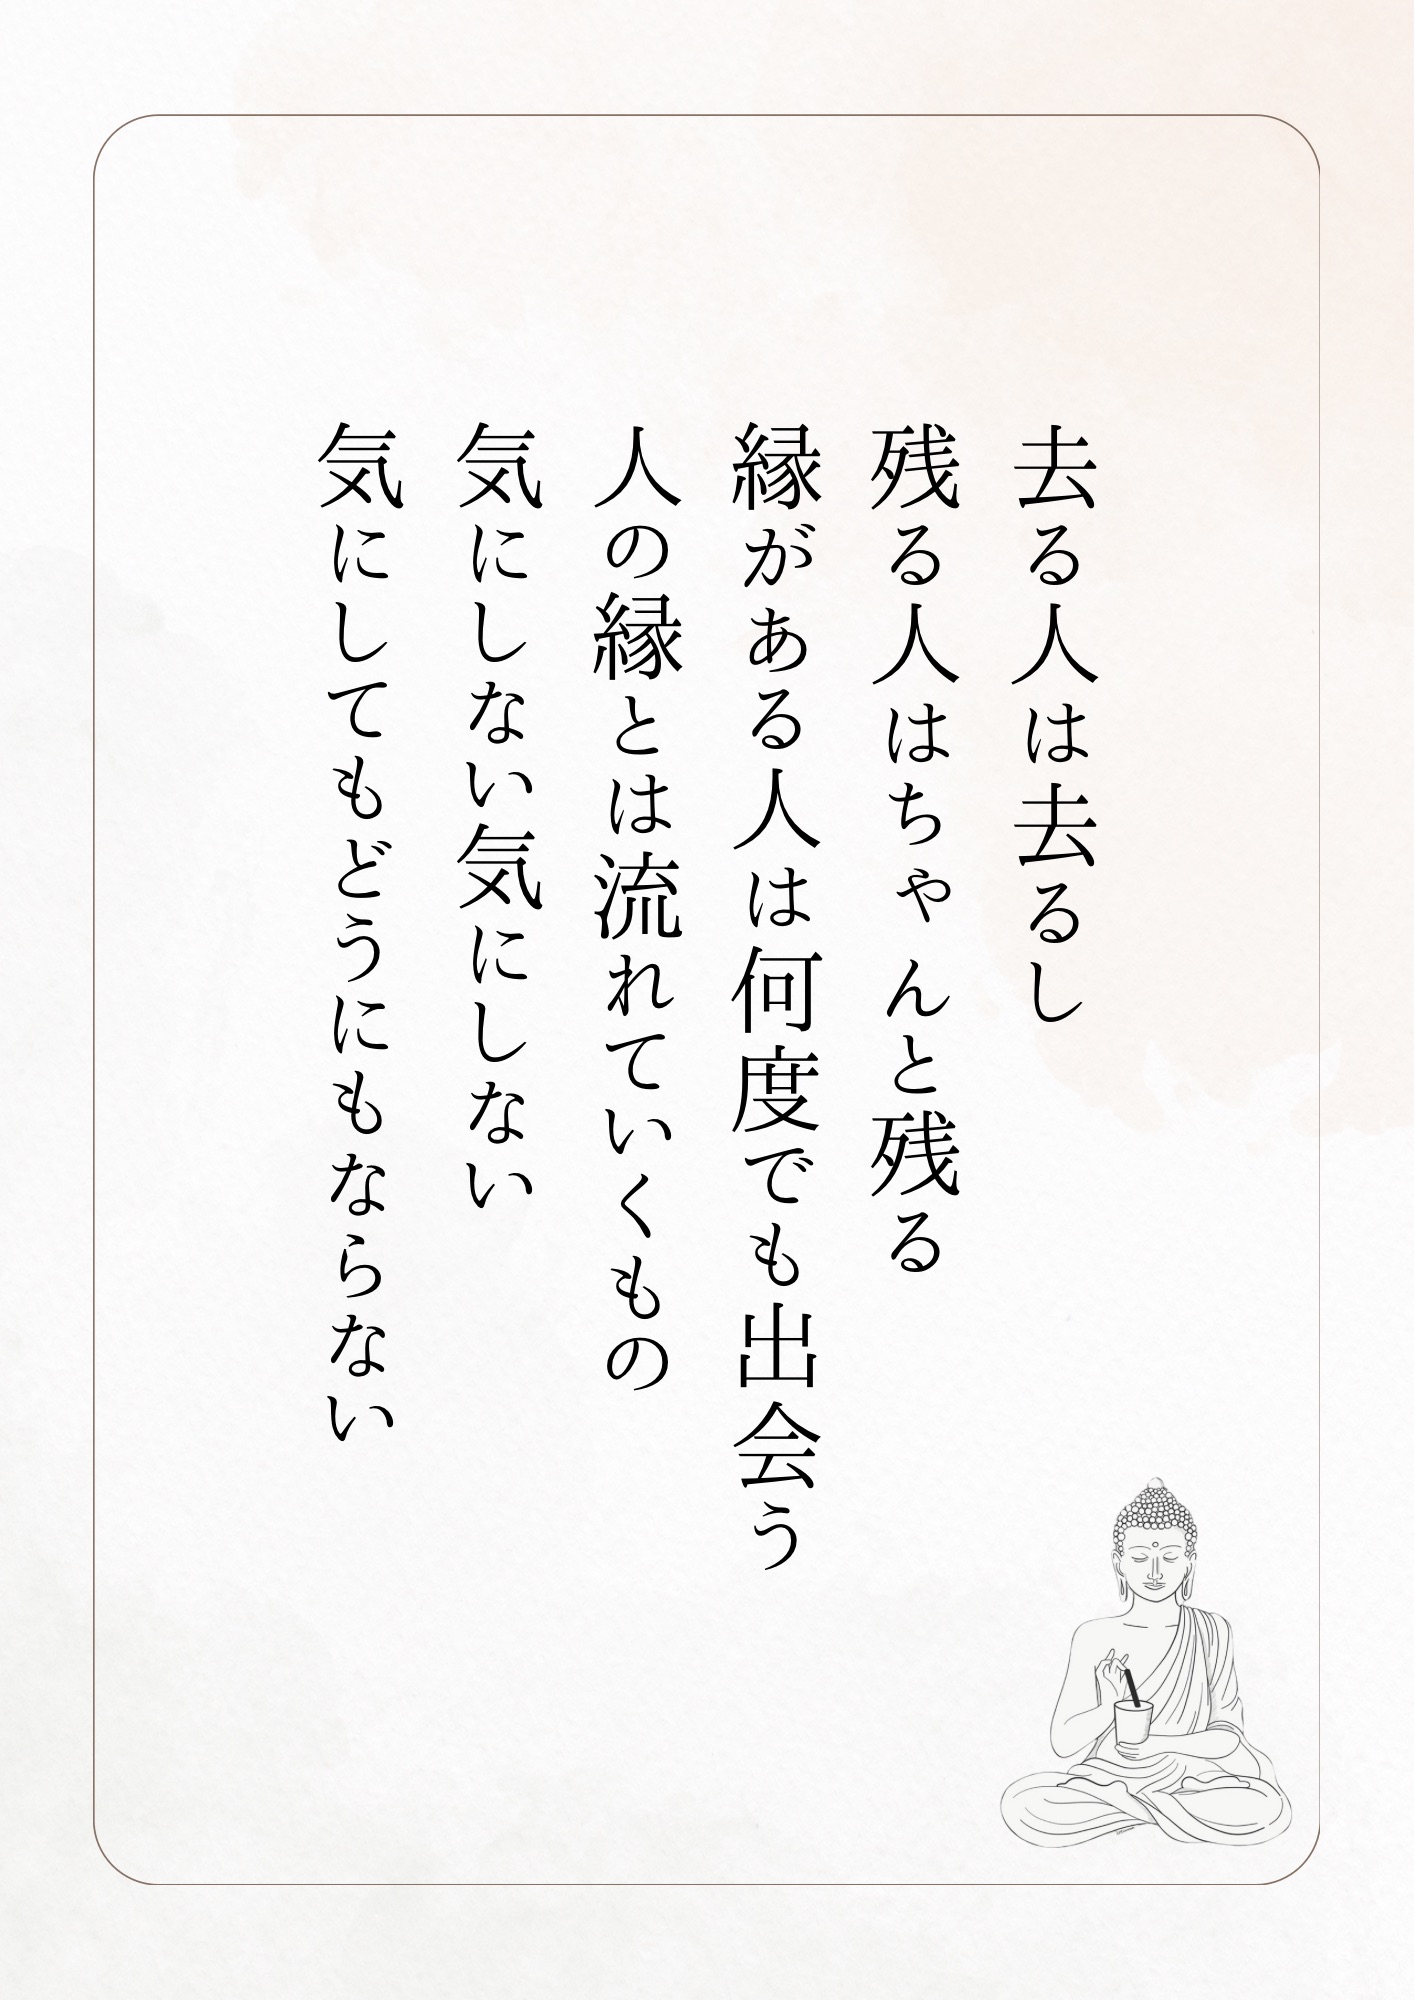 去る人は去るし
残る人はちゃんと残る
縁がある人は何度でも出会う
人の縁とは流れていくもの
気にしない気にしない
気にしてもどうにもならない